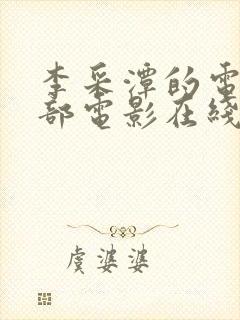 李采潭的電
部電影在綫
虞婆婆